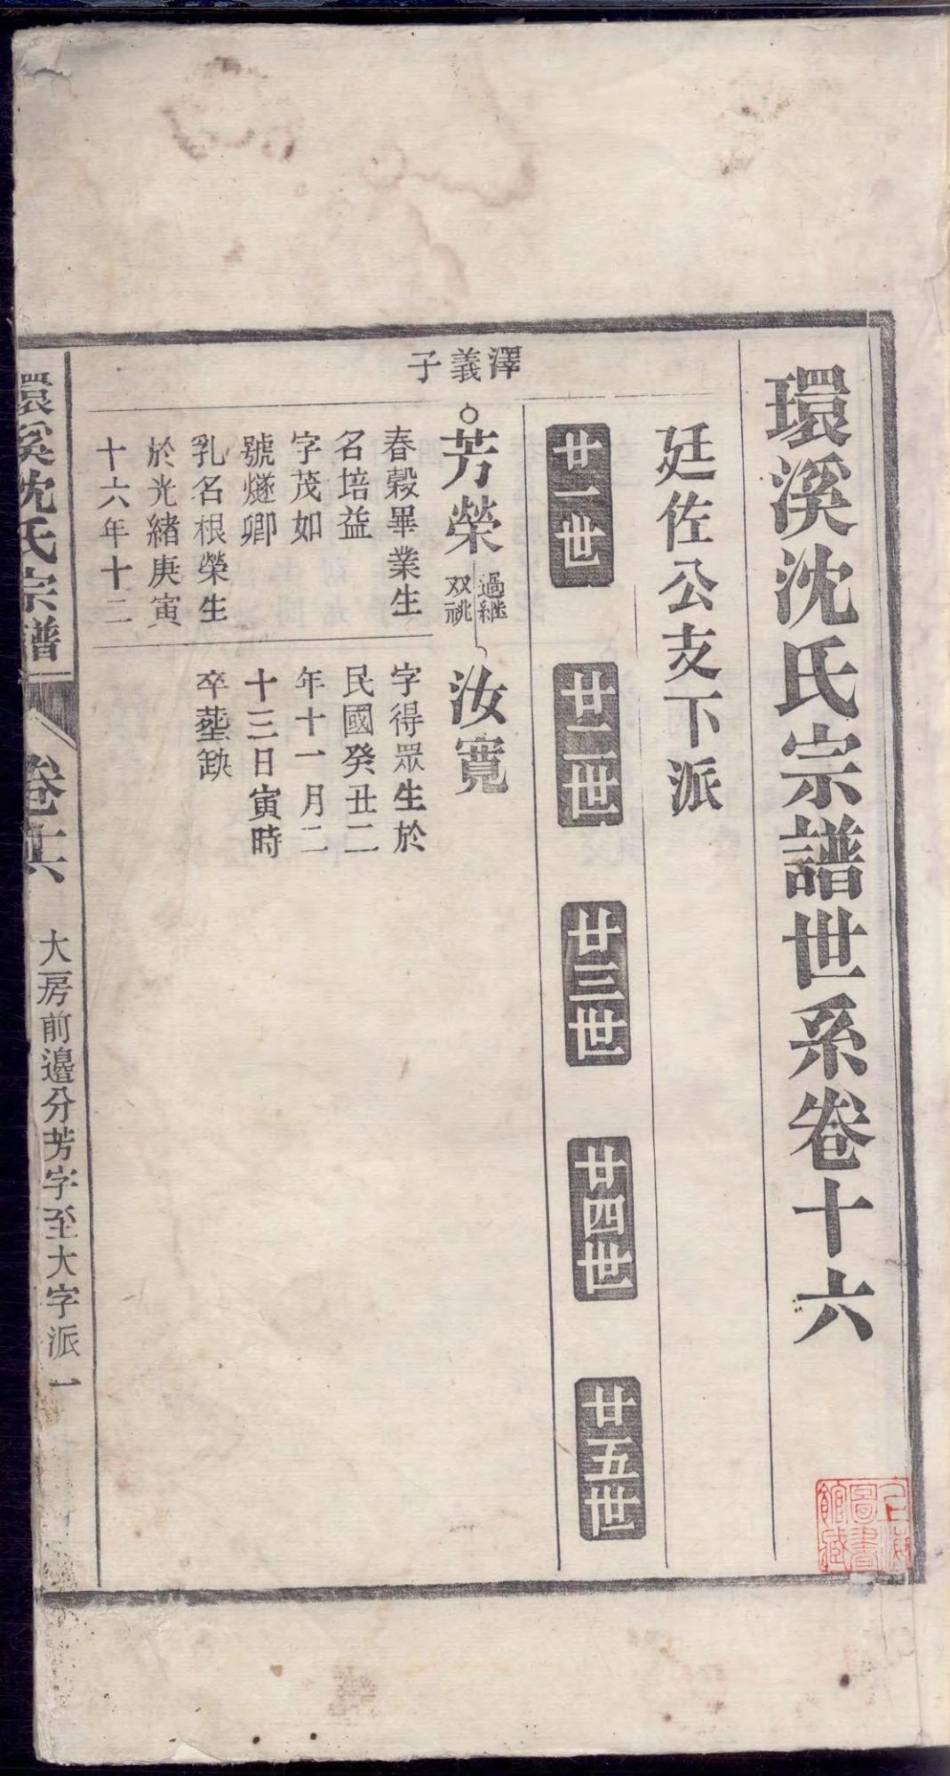 環溪沈氏宗譜世系卷十六
廷佐公支下派
廿一世
廿二世
廿三世
廿四世
廿五世
澤義子
芳榮
過継
双祧
汝寬
春穀畢業生
名培益
字茂如
號燧卿
乳名根榮生
於光緒庚寅
十六年十二
字得眾生於
民國癸丑二
年十一月二
十三日寅時
卒塟缺
環溪沈氏宗譜
卷十六
大房前邊分芳字至大字派
一
上海
圖書
館藏